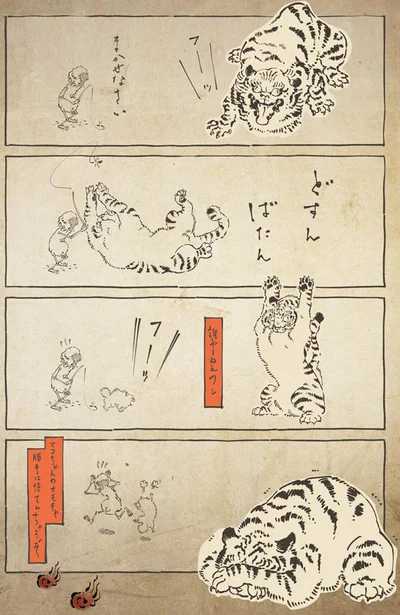 フーーッ
まかせなさい
どすん
ばたん
誰やねんワレ
フーッ
マコちゃんのオモチャ
勝手に使てん